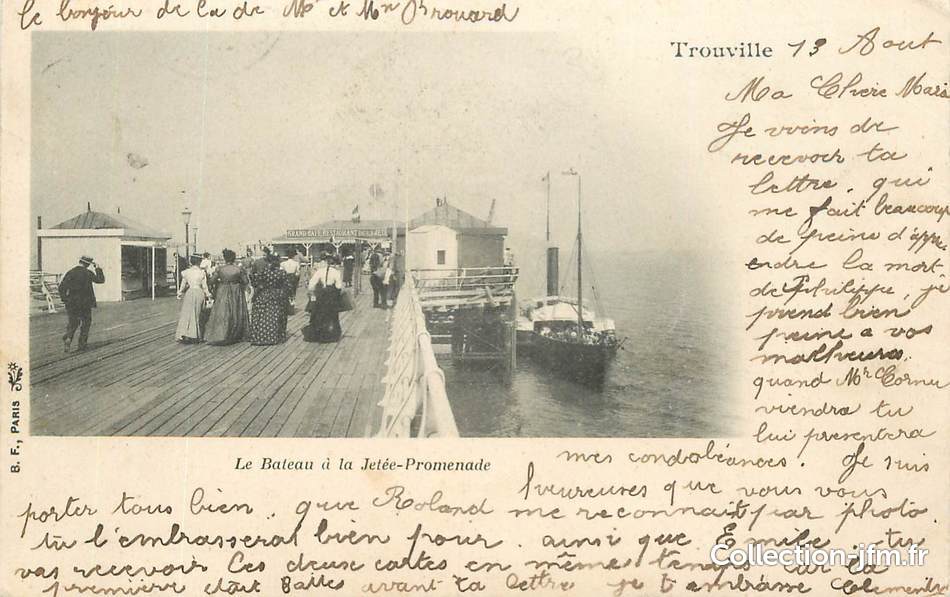 le bonjour de la de Mr et Mn Brouard
Trouville 13 Aout
Ma Chere Maria
Je viens de
recevoir ta
lettre, qui
me fait beaucoup
de peine d'appr
endre la mort
de Philippe, je
prend bien
peine a vos
malheurs,
quand Mr Cornu
viendra tu
lui presentera
mes condoléances. Je suis
heureuses que vous vous
porter tous bien, que Roland me reconnait par photo
tu l'embrassera bien pour. ainsi que Emile, tu
vas recevoir Ces deux cartes en même temps sur la
premiere était avant ta lettre je t'embrasse
GRAND CAFÉ RESTAURANT
B. F., PARIS
Le Bateau à la Jetée-Promenade
Collection-jfm.fr